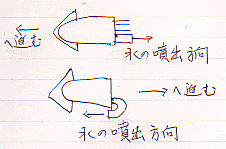 へ進む
水の噴出方向
へ進む
水の噴出方向